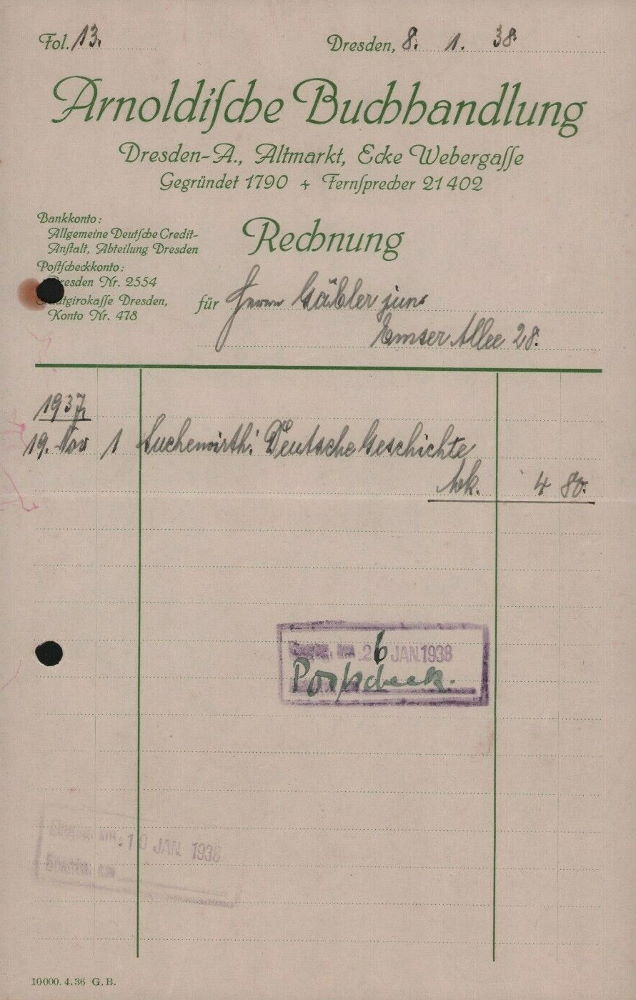 Fol. 13.
Dresden, 8. 1. 38.
Arnoldische Buchhandlung
Dresden-A., Altmarkt, Ecke Webergasse
Gegründet 1790 + Fernsprecher 21 402
Bankkonto:
Allgemeine Deutsche Credit-
Anstalt, Abteilung Dresden
Postscheckkonto:
Dresden Nr. 2554
Stadtgirokasse Dresden,
Konto Nr. 478
Rechnung
für Herrn Gäbler jun.
Emser Allee 28.
1937
19. Nov 1 Suchenwirth: Deutsche Geschichte
Mk. 4 80.
26 JAN. 1938
Postscheck.
10 JAN. 1938
10000. 4. 36 G. B.